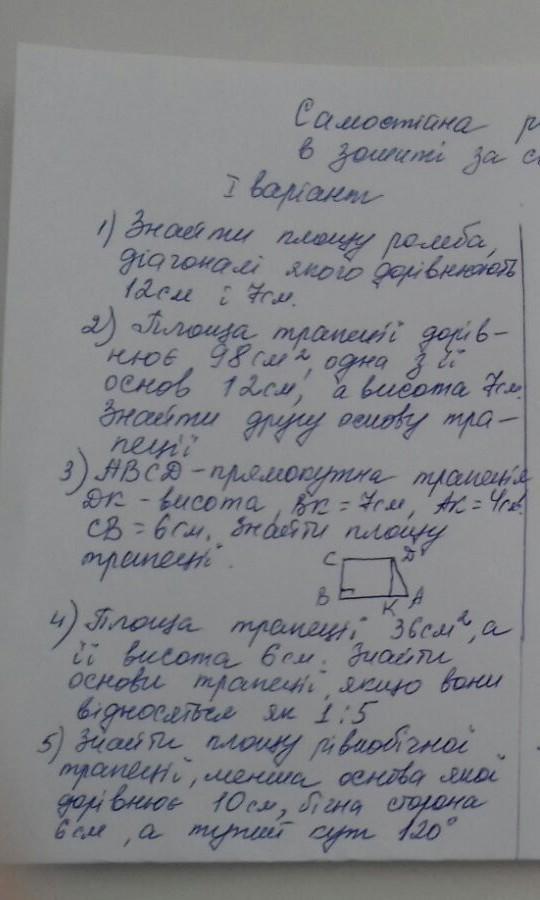 Самостійна
в зошиті за
I варіант
1) Знайти площу ромба,
діагоналі якого дорівнюють
12см і 7см.
2) Площа трапеції дорів-
нює 98см², одна з її
основ 12см, а висота 7см.
Знайти другу основу тра-
пеції
3) ABCD – прямокутна трапеція
DK – висота, BK = 7см, AK = 4см.
CB = 6см. Знайти площу
трапеції.
C D
B K A
4) Площа трапеції 36см², а
її висота 6см. Знайти
основи трапеції, якщо вони
відносяться як 1:5
5) Знайти площу рівнобічної
трапеції, менша основа якої
дорівнює 10см, бічна сторона
6см, а тупий кут 120°